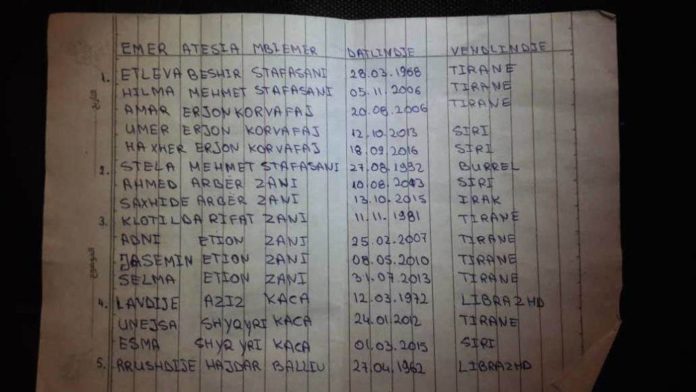 EMER ATESIA MBIEMER DATLINDJE VENDLINDJE
1. ETLEVA BESHIR STAFASANI 28.03.1968 TIRANE
HILMA MEHMET STAFASANI 05.11.2006 TIRANE
AMAR ERJON KORVAFAJ 20.08.2006 TIRANE
UMER ERJON KORVAFAJ 12.10.2013 SIRI
HAXHER ERJON KORVAFAJ 18.09.2016 SIRI
2. STELA MEHMET STAFASANI 27.08.1992 BURREL
AHMED ARBER ZANI 10.08.2013 SIRI
SAXHIDE ARBER ZANI 13.10.2015 IRAK
3. KLOTILDA RIFAT ZANI 11.11.1981 TIRANE
ADNI ETION ZANI 25.02.2007 TIRANE
JASEMIN ETION ZANI 08.05.2010 TIRANE
SELMA ETION ZANI 31.07.2013 TIRANE
4. LAVDIJE AZIZ KACA 12.03.1972 LIBRAZHD
UNEJSA SHYQYRI KACA 24.01.2012 TIRANE
ESMA SHYQYRI KACA 01.03.2015 SIRI
5. RRUSHDIJE HAJDAR BALLIU 27.04.1962 LIBRAZHD
التاريخ
الموضوع